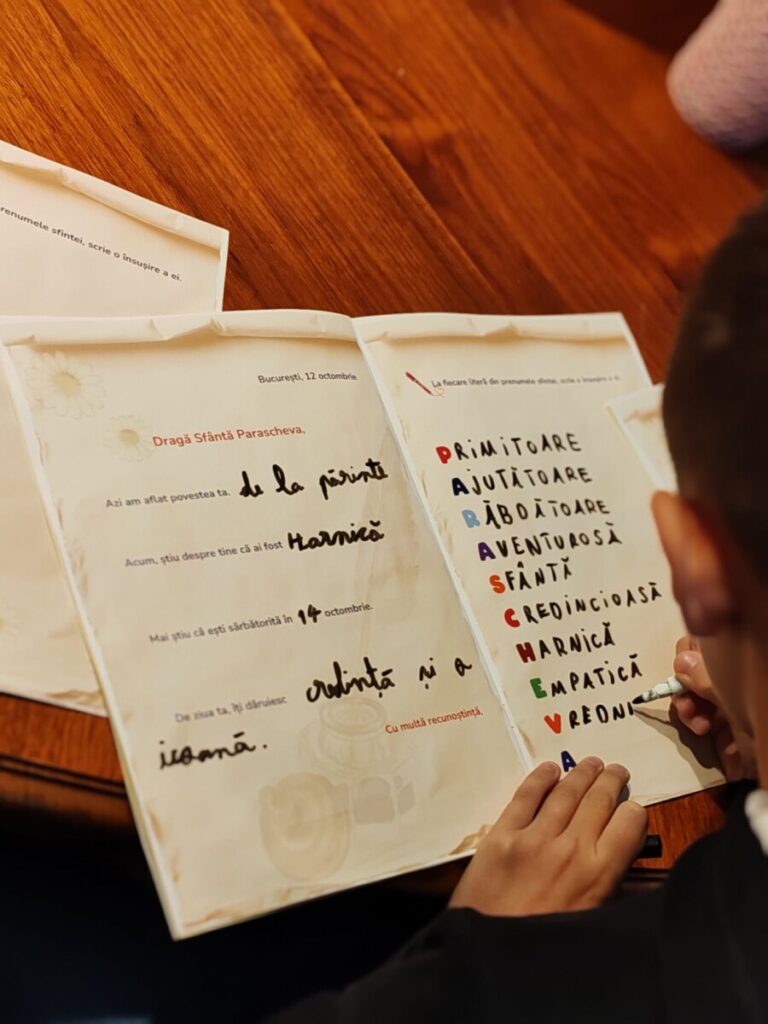 renumele sfintei, scrie o însușire a ei.
București, 12 octombrie
Dragă Sfântă Parascheva,
Azi am aflat povestea ta. de la părinte
Acum, știu despre tine că ai fost Harnică
Mai știu că ești sărbătorită în 14 octombrie.
De ziua ta, îți dăruiesc credință și o
icoană.
Cu multă recunoștință,
La fiecare literă din prenumele sfintei, scrie o însușire a ei.
PRIMITOARE
AJUTĂTOARE
RĂBDĂTOARE
AVENTUROSĂ
SFÂNTĂ
CREDINCIOASĂ
HARNICĂ
EMPATICĂ
VREDNI
A